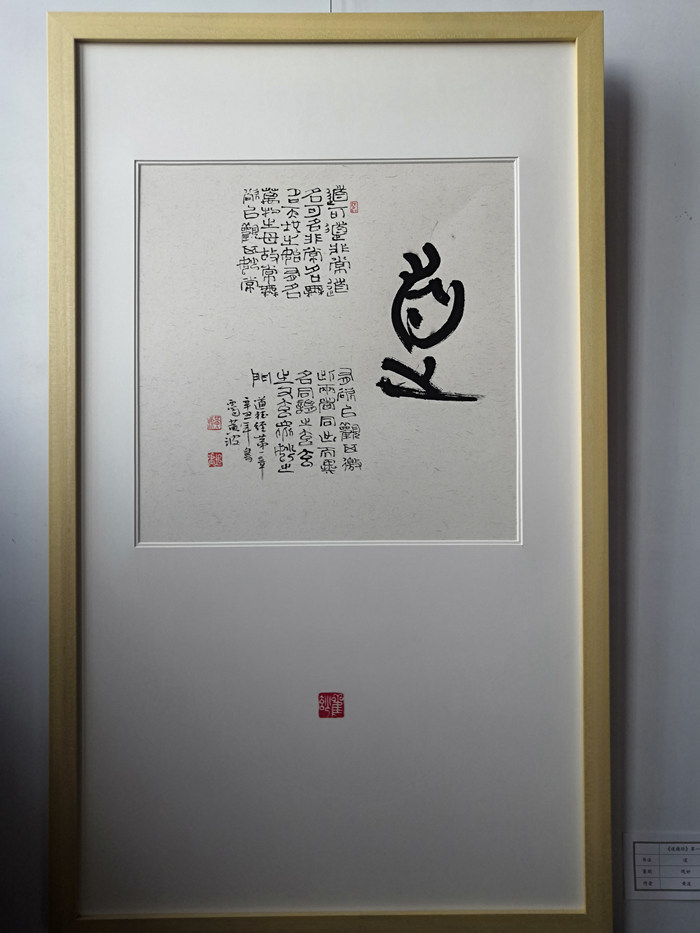 道
道可道非常道
名可名非常名無
名天地之始有名
萬物之母故常無
欲以觀其妙常
有欲以觀其徼
此兩者同出而異
名同謂之玄玄
之又玄眾妙之
門
道德經第一章
辛丑年
《道德经》第一